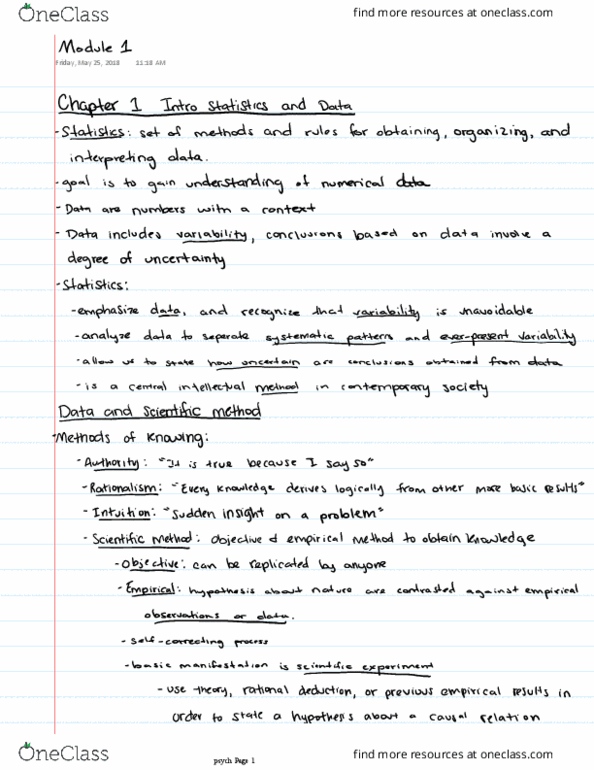 OneClass
find more resources at oneclass.com
Module 1
Friday, May 25, 2018 11:18 AM
Chapter 1 Intro Statistics and Data
- Statistics: set of methods and rules for obtaining, organizing, and
interpreting data.
- goal is to gain understanding of numerical data
- Data are numbers with a context
- Data includes variability, conclusions based on data involve a
degree of uncertainty
- Statistics:
- emphasize data, and recognize that variability is unavoidable
- analyze data to separate systematic pattern and ever-present variability
- allow us to state how uncertain are conclusions obtained from data
- is a central intellectual method in contemporary society
Data and Scientific method
- Methods of Knowing:
- Authority: "It is true because I say so"
- Rationalism: "Every Knowledge derives logically from other more basic results"
- Intuition: "Sudden insight on a problem"
- Scientific Method: objective & empirical method to obtain knowledge
- Objective: can be replicated by anyone
- Empirical: hypothesis about nature are contrasted against empirical
observations or data.
- self-correcting process
- basic manifestation is scientific experiment
- use theory, rational deduction, or previous empirical results in
order to state a hypothesis about a causal relation
OneClass
psych Page 1
find more resources at oneclass.com